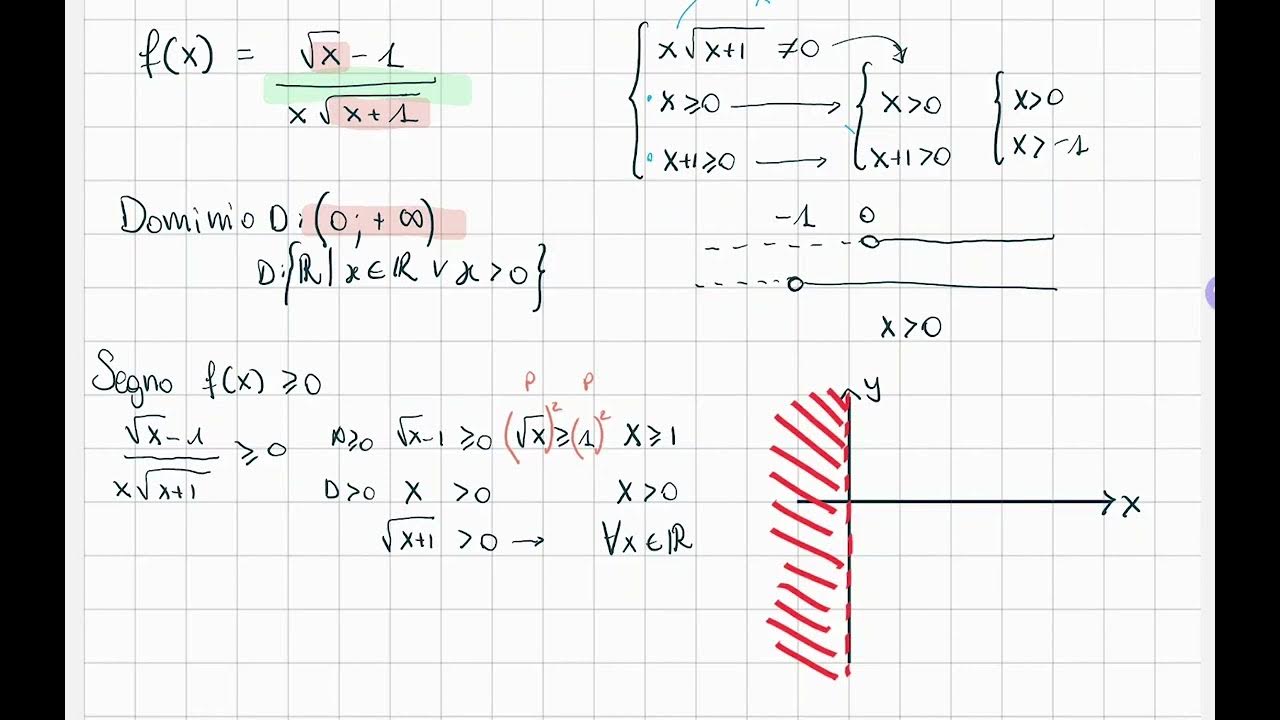 f(x) = (√x - 1) / (x √(x+1))
x √(x+1) ≠0
x ≥0 → x>0 x>0
x+1≥0 → x+1>0 x>-1
Dominio D: (0; +∞)
D: {ℝ | x ∈ ℝ ∨ x > 0}
-1 0
x>0
Segno f(x) ≥0
(√x - 1) / (x √(x+1)) ≥0
N≥0 √x-1 ≥0 (√x)² ≥ (1)² x≥1
P P
D>0 x >0 x>0
√(x+1) >0 → ∀x∈ℝ
y
x